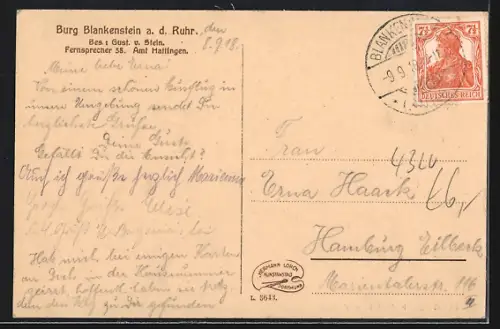 Burg Blankenstein a. d. Ruhr. den
Bes : Gust. v. Stein. 8.9.18.
Fernsprecher 38. Amt Hattingen.
Meine liebe Erna!
Von einem schönen Ausflug in
unsere Umgebung sendet Dir
herzlichste Grüße
Deine Gust
Gefällt Dir die
Auch ich grüße herzlich Marianne
Hab mich bei einigen Karten
an Dich in der Hausnummer
geirrt, hoffentl. haben sie trotz-
dem den Weg zu Dir gefunden
BLANKEN
-9.9.18
7½ 7½
DEUTSCHES REICH
Frau
4320
66,-
Erna Haack
Hamburg Eilbeck
Marientalerstr. 116
HERMANN LORCH
KUNSTANSTALT
DORTMUND
L. 5643.